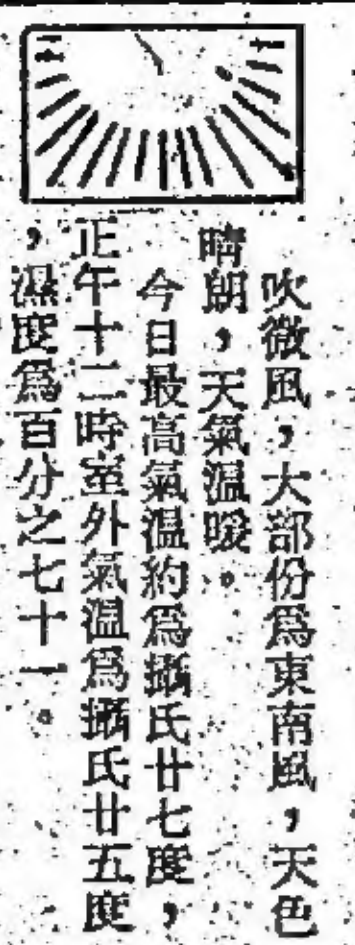 吹微風，大部份爲東南風，天色
晴朗，天氣溫暖。
今日最高氣溫約爲攝氏廿七度，
正午十二時室外氣溫爲攝氏廿五度
，濕度爲百分之七十一。